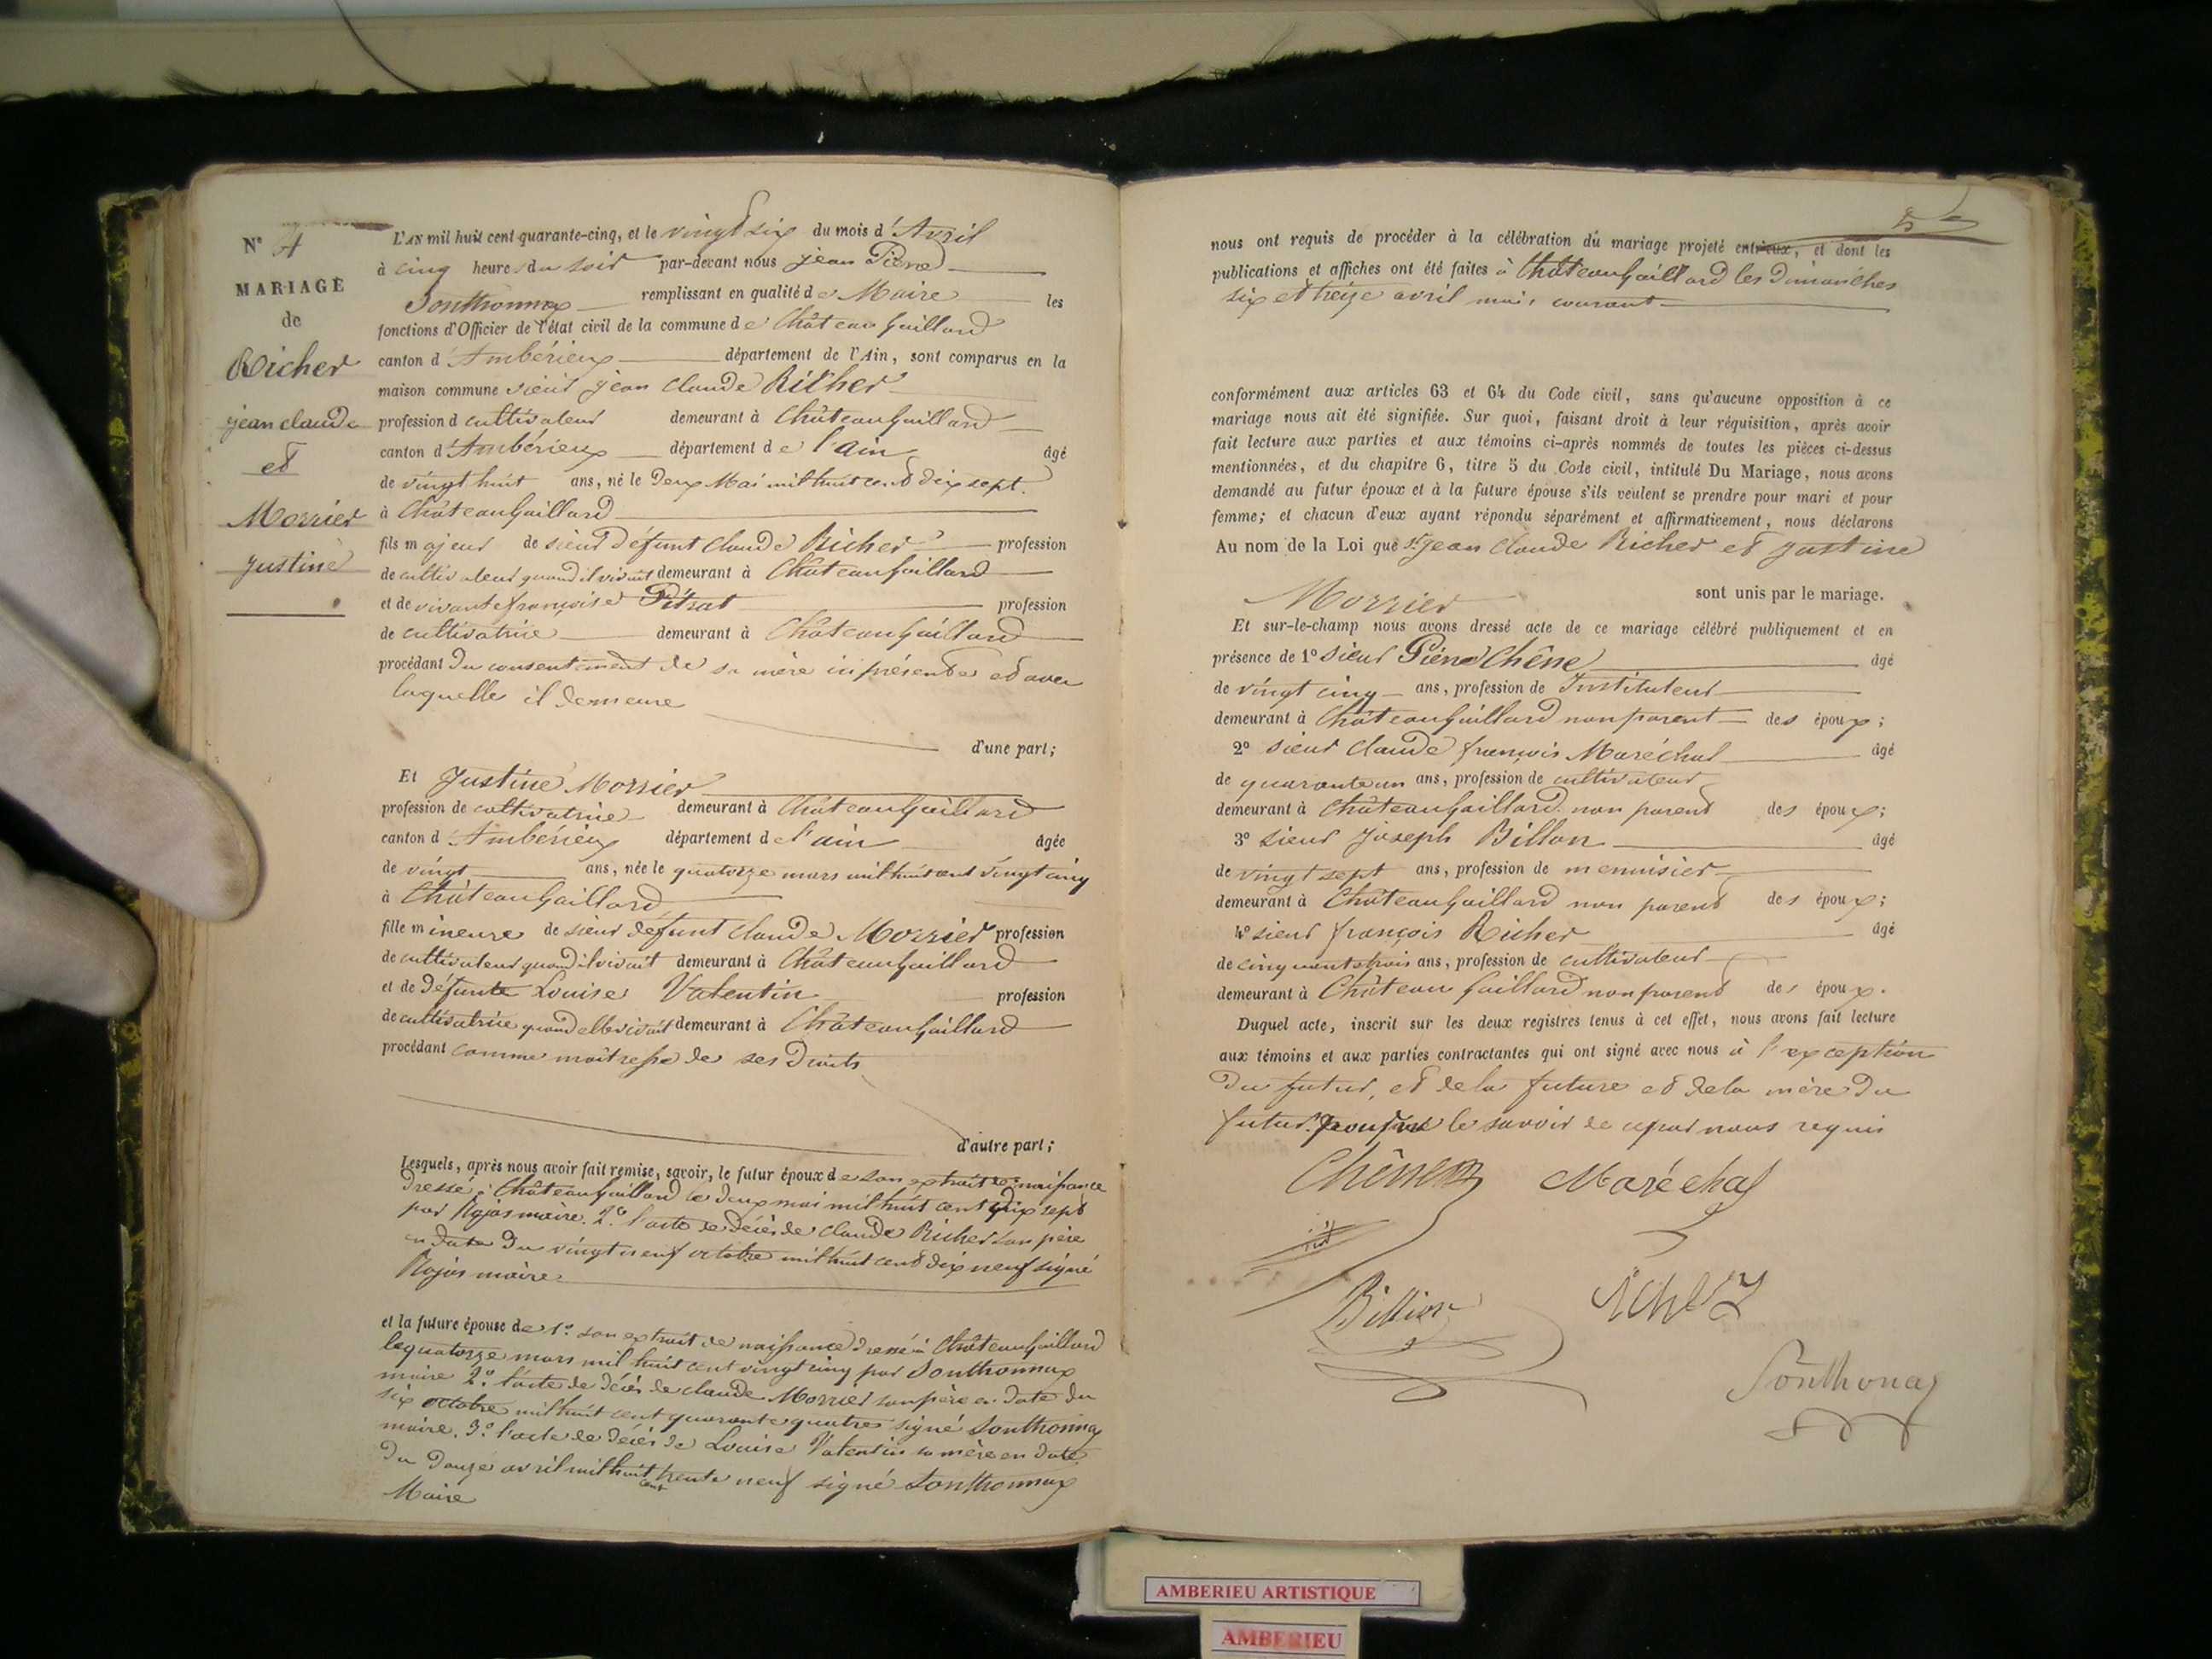 N° 4
MARIAGE
de
Richer
jean claude
et
Morrier
Justine
L'AN mil huit cent quarante-cinq, et le vingt six du mois d'Avril
à cinq heures du soir par-devant nous jean Pierre
Sonthonnax remplissant en qualité de Maire les
fonctions d'Officier de l'état civil de la commune de Château Gaillard
canton d'Ambérieux département de l'Ain, sont comparus en la
maison commune sieur jean claude Richer
profession d cultivateur demeurant à Château Gaillard
canton d'Ambérieux département de l'ain âgé
de vingt huit ans, né le deux Mai mil huit cent dix sept.
à Château Gaillard
fils majeur de sieur défunt claude Richer profession
de cultivateur quand il vivait demeurant à Château Gaillard
et de vivante françoise Pitrat profession
de cultivatrice demeurant à Château Gaillard
procédant du consentement de sa mère ici présente et avec
laquelle il demeure
d'une part;
Et Justine Morrier
profession de cultivatrice demeurant à Château Gaillard
canton d'Ambérieux département de l'ain âgée
de vingt ans, née le quatorze mars mil huit cent vingt cinq
à Château Gaillard
fille mineure de sieur défunt claude Morrier profession
de cultivateur quand il vivait demeurant à Château Gaillard
et de défunte Louise Valentin profession
de cultivatrice quand elle vivait demeurant à Château Gaillard
procédant comme maîtresse de ses droits
d'autre part;
Lesquels, après nous avoir fait remise, savoir, le futur époux de son extrait de naissance
dressé à Château Gaillard le deux mai mil huit cent dix sept
par Rojas maire. 2° l'acte de décès de claude Richer son père
en date du vingt neuf octobre mil huit cent dix neuf signé
Rojas maire
et la future épouse de 1° son extrait de naissance dressé à Château Gaillard
le quatorze mars mil huit cent vingt cinq par Sonthonnax
maire 2° l'acte de décès de claude Morrier son père en date du
six octobre mil huit cent quarante quatre signé Sonthonnax
maire. 3° l'acte de décès de Louise Valentin sa mère en date
du douze avril mil huit cent trente neuf signé Sonthonnax
Maire
5
nous ont requis de procéder à la célébration du mariage projeté entr'eux, et dont les
publications et affiches ont été faites à Château Gaillard les dimanches
six et treize avril mois courant
conformément aux articles 63 et 64 du Code civil, sans qu'aucune opposition à ce
mariage nous ait été signifiée. Sur quoi, faisant droit à leur réquisition, après avoir
fait lecture aux parties et aux témoins ci-après nommés de toutes les pièces ci-dessus
mentionnées, et du chapitre 6, titre 5 du Code civil, intitulé Du Mariage, nous avons
demandé au futur époux et à la future épouse s'ils veulent se prendre pour mari et pour
femme; et chacun d'eux ayant répondu séparément et affirmativement, nous déclarons
Au nom de la Loi que Sr jean claude Richer et Justine
Morrier sont unis par le mariage.
Et sur-le-champ nous avons dressé acte de ce mariage célébré publiquement et en
présence de 1° sieur Pierre Chêne âgé
de vingt cinq ans, profession de Instituteur
demeurant à Château Gaillard non parent des époux;
2° sieur claude françois Maréchal âgé
de quarante un ans, profession de cultivateur
demeurant à Château Gaillard non parent des époux;
3° sieur Joseph Billon âgé
de vingt sept ans, profession de menuisier
demeurant à Château Gaillard non parent des époux;
4° sieur françois Richer âgé
de cinquante trois ans, profession de cultivateur
demeurant à Château Gaillard non parent des époux.
Duquel acte, inscrit sur les deux registres tenus à cet effet, nous avons fait lecture
aux témoins et aux parties contractantes qui ont signé avec nous à l'exception
du futur, et de la future et de la mère du
futur. pour ne le savoir de ce par nous requis
Chêne Maréchal
Billion
Sonthonax
AMBERIEU ARTISTIQUE
AMBERIEU